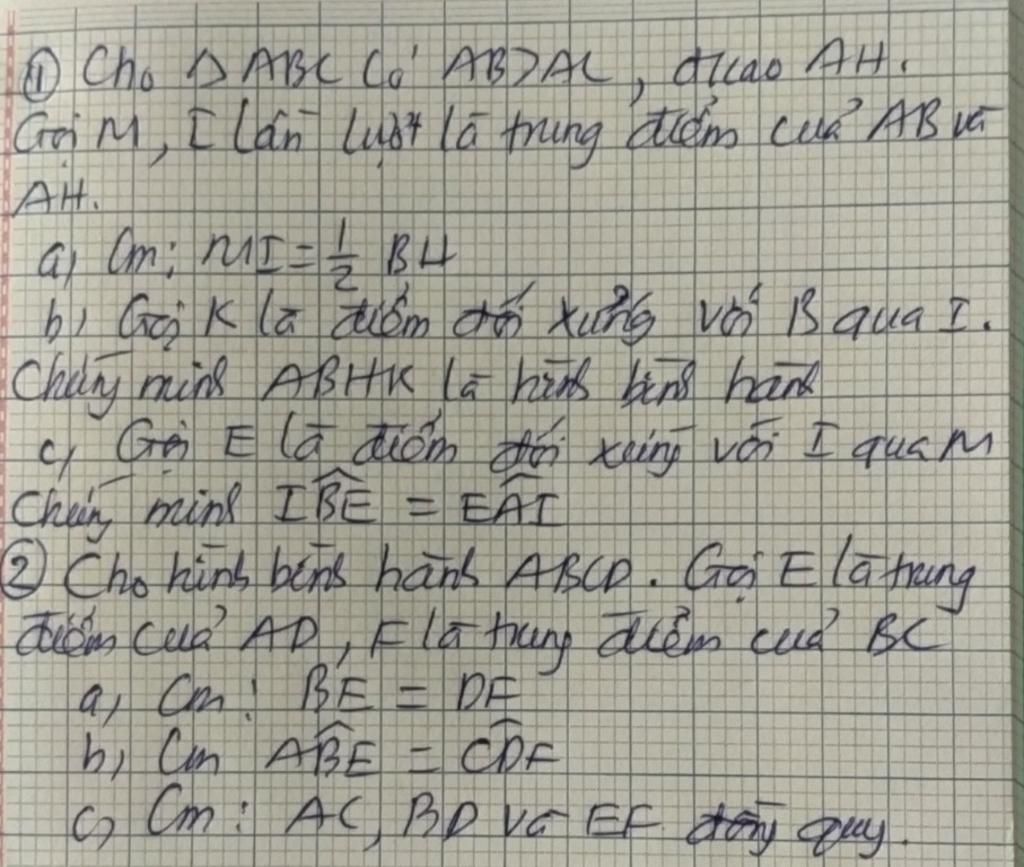 ① Cho △ABC có AB>AC, đ/cao AH.
Gọi M, I lần lượt là trung điểm của AB và
AH.
a) Cm: MI = 1/2 BH
b) Gọi K là điểm đối xứng với B qua I.
Chứng minh ABHK là hình bình hành
c) Gọi E là điểm đối xứng với I qua M
Chứng minh IB̂E = EÂI
② Cho hình bình hành ABCD. Gọi E là trung
điểm của AD, F là trung điểm của BC
a) Cm: BE = DF
b) Cm AB̂E = CD̂F
c) Cm: AC, BD và EF đồng quy.